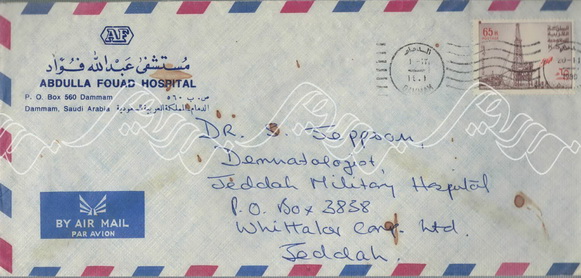 AF
مستشفى عبدالله فؤاد
ABDULLA FOUAD HOSPITAL
P. O. Box 560 Dammam ص . ب ٥٦٠
Dammam, Saudi Arabia الدمام المملكة العربية السعودية
65
الدمام
DAMMAM
DR. S. Jeppson,
Dermatologist,
Jeddah Military Hospital
P.O. Box 3838
Whittaker Corp. Ltd.
Jeddah.
BY AIR MAIL
PAR AVION